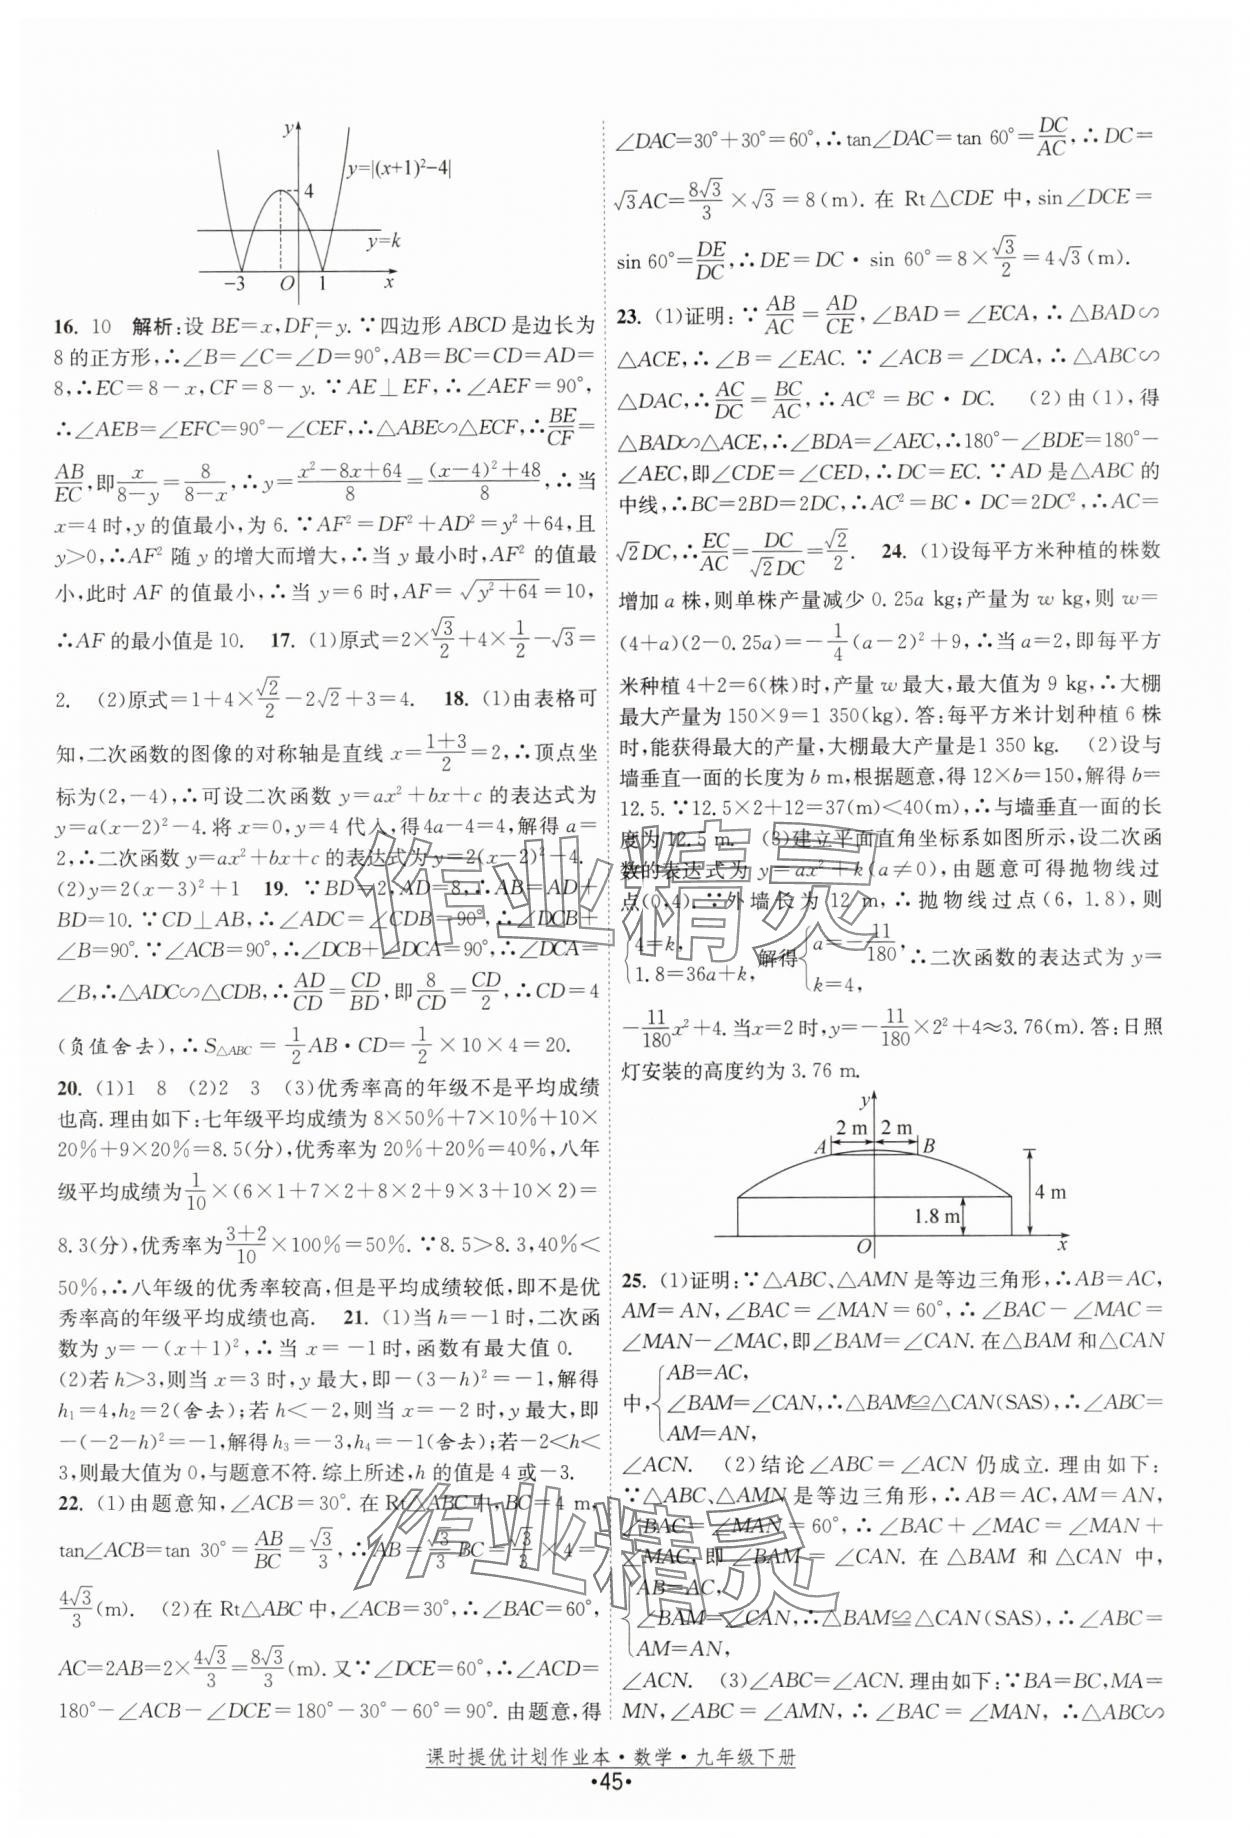 y
y=|(x+1)²−4|
4
y=k
−3 O 1 x
16. 10 解析:设 BE=x,DF=y.∵四边形 ABCD 是边长为
8 的正方形,∴∠B=∠C=∠D=90°,AB=BC=CD=AD=
8,∴EC=8−x,CF=8−y.∵AE⊥EF,∴∠AEF=90°,
∴∠AEB=∠EFC=90°−∠CEF,∴△ABE∽△ECF,∴BE/CF=
AB/EC,即x/(8−y)=8/(8−x),∴y=(x²−8x+64)/8=((x−4)²+48)/8,∴当
x=4 时,y 的值最小,为 6.∵AF²=DF²+AD²=y²+64,且
y>0,∴AF² 随 y 的增大而增大,∴当 y 最小时,AF² 的值最
小,此时 AF 的值最小,∴当 y=6 时,AF=√(y²+64)=10,
∴AF 的最小值是 10. 17. (1)原式=2×√3/2+4×1/2−√3=
2. (2)原式=1+4×√2/2−2√2+3=4. 18. (1)由表格可
知,二次函数的图像的对称轴是直线 x=(1+3)/2=2,∴顶点坐
标为(2,−4),∴可设二次函数 y=ax²+bx+c 的表达式为
y=a(x−2)²−4.将 x=0,y=4 代入,得4a−4=4,解得 a=
2,∴二次函数 y=ax²+bx+c 的表达式为 y=2(x−2)²−4.
(2)y=2(x−3)²+1 19. ∵BD=2,AD=8,∴AB=AD+
BD=10.∵CD⊥AB,∴∠ADC=∠CDB=90°,∴∠DCB+
∠B=90°.∵∠ACB=90°,∴∠DCB+∠DCA=90°,∴∠DCA=
∠B,∴△ADC∽△CDB,∴AD/CD=CD/BD,即8/CD=CD/2,∴CD=4
(负值舍去),∴S△ABC=1/2AB·CD=1/2×10×4=20.
20. (1)1 8 (2)2 3 (3)优秀率高的年级不是平均成绩
也高.理由如下:七年级平均成绩为 8×50%+7×10%+10×
20%+9×20%=8.5(分),优秀率为 20%+20%=40%,八年
级平均成绩为1/10×(6×1+7×2+8×2+9×3+10×2)=
8.3(分),优秀率为(3+2)/10×100%=50%.∵8.5>8.3,40%<
50%,∴八年级的优秀率较高,但是平均成绩较低,即不是优
秀率高的年级平均成绩也高. 21. (1)当 h=−1 时,二次函
数为 y=−(x+1)²,∴当 x=−1时,函数有最大值 0.
(2)若 h>3,则当 x=3 时,y 最大,即−(3−h)²=−1,解得
h₁=4,h₂=2(舍去);若 h<−2,则当 x=−2 时,y 最大,即
−(−2−h)²=−1,解得 h₃=−3,h₄=−1(舍去);若−2<h<
3,则最大值为 0,与题意不符.综上所述,h 的值是 4 或−3.
22. (1)由题意知,∠ACB=30°.在 Rt△ABC 中,BC=4 m,
tan∠ACB=tan 30°=AB/BC=√3/3,∴AB=√3/3BC=√3/3×4=
4√3/3(m). (2)在 Rt△ABC 中,∠ACB=30°,∴∠BAC=60°,
AC=2AB=2×4√3/3=8√3/3(m).又∵∠DCE=60°,∴∠ACD=
180°−∠ACB−∠DCE=180°−30°−60°=90°.由题意,得
∠DAC=30°+30°=60°,∴tan∠DAC=tan 60°=DC/AC,∴DC=
√3AC=8√3/3×√3=8(m).在 Rt△CDE 中,sin∠DCE=
sin 60°=DE/DC,∴DE=DC·sin 60°=8×√3/2=4√3(m).
23. (1)证明:∵AB/AC=AD/CE,∠BAD=∠ECA,∴△BAD∽
△ACE,∴∠B=∠EAC.∵∠ACB=∠DCA,∴△ABC∽
△DAC,∴AC/DC=BC/AC,∴AC²=BC·DC. (2)由(1),得
△BAD∽△ACE,∴∠BDA=∠AEC,∴180°−∠BDE=180°−
∠AEC,即∠CDE=∠CED,∴DC=EC.∵AD 是△ABC 的
中线,∴BC=2BD=2DC,∴AC²=BC·DC=2DC²,∴AC=
√2DC,∴EC/AC=DC/(√2DC)=√2/2. 24. (1)设每平方米种植的株数
增加 a 株,则单株产量减少 0.25a kg;产量为 w kg,则 w=
(4+a)(2−0.25a)=−1/4(a−2)²+9,∴当 a=2,即每平方
米种植 4+2=6(株)时,产量 w 最大,最大值为 9 kg,∴大棚
最大产量为 150×9=1 350(kg).答:每平方米计划种植 6 株
时,能获得最大的产量,大棚最大产量是1 350 kg. (2)设与
墙垂直一面的长度为 b m,根据题意,得 12×b=150,解得 b=
12.5.∵12.5×2+12=37(m)<40(m),∴与墙垂直一面的长
度为 12.5 m. (3)建立平面直角坐标系如图所示,设二次函
数的表达式为 y=ax²+k(a≠0),由题意可得抛物线过
点(0,4).∵外墙长为 12 m,∴抛物线过点(6, 1.8),则
{4=k, 1.8=36a+k, 解得{a=−11/180, k=4, ∴二次函数的表达式为 y=
−11/180x²+4.当x=2 时,y=−11/180×2²+4≈3.76(m).答:日照
灯安装的高度约为 3.76 m.
y
2 m 2 m
A B
4 m
1.8 m
O x
25. (1)证明:∵△ABC、△AMN 是等边三角形,∴AB=AC,
AM=AN,∠BAC=∠MAN=60°,∴∠BAC−∠MAC=
∠MAN−∠MAC,即∠BAM=∠CAN.在△BAM 和△CAN
中,{AB=AC, ∠BAM=∠CAN, AM=AN, ∴△BAM≌△CAN(SAS),∴∠ABC=
∠ACN. (2)结论∠ABC=∠ACN 仍成立.理由如下:
∵△ABC、△AMN 是等边三角形,∴AB=AC,AM=AN,
∠BAC=∠MAN=60°,∴∠BAC+∠MAC=∠MAN+
∠MAC,即∠BAM=∠CAN.在△BAM 和△CAN 中,
{AB=AC, ∠BAM=∠CAN, AM=AN, ∴△BAM≌△CAN(SAS),∴∠ABC=
∠ACN. (3)∠ABC=∠ACN.理由如下:∵BA=BC,MA=
MN,∠ABC=∠AMN,∴∠BAC=∠MAN,∴△ABC∽
课时提优计划作业本·数学·九年级下册
·45·
作业精灵
作业精灵